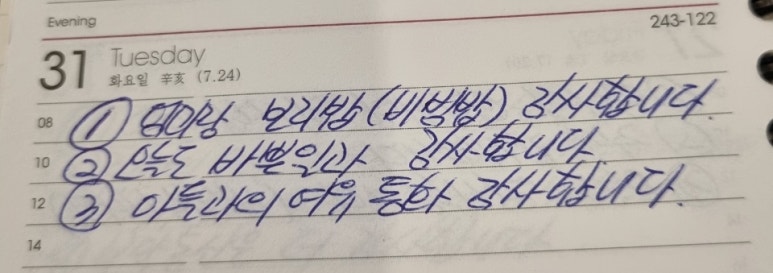 Evening
243-122
31 Tuesday
화요일 辛亥 (7.24)
08 ① 엄마랑 보리밥(비빔밥) 감사합니다.
10 ② 오늘도 바쁜일과 감사합니다.
12 ③ 아들과의 여유 통화 감사합니다.
14